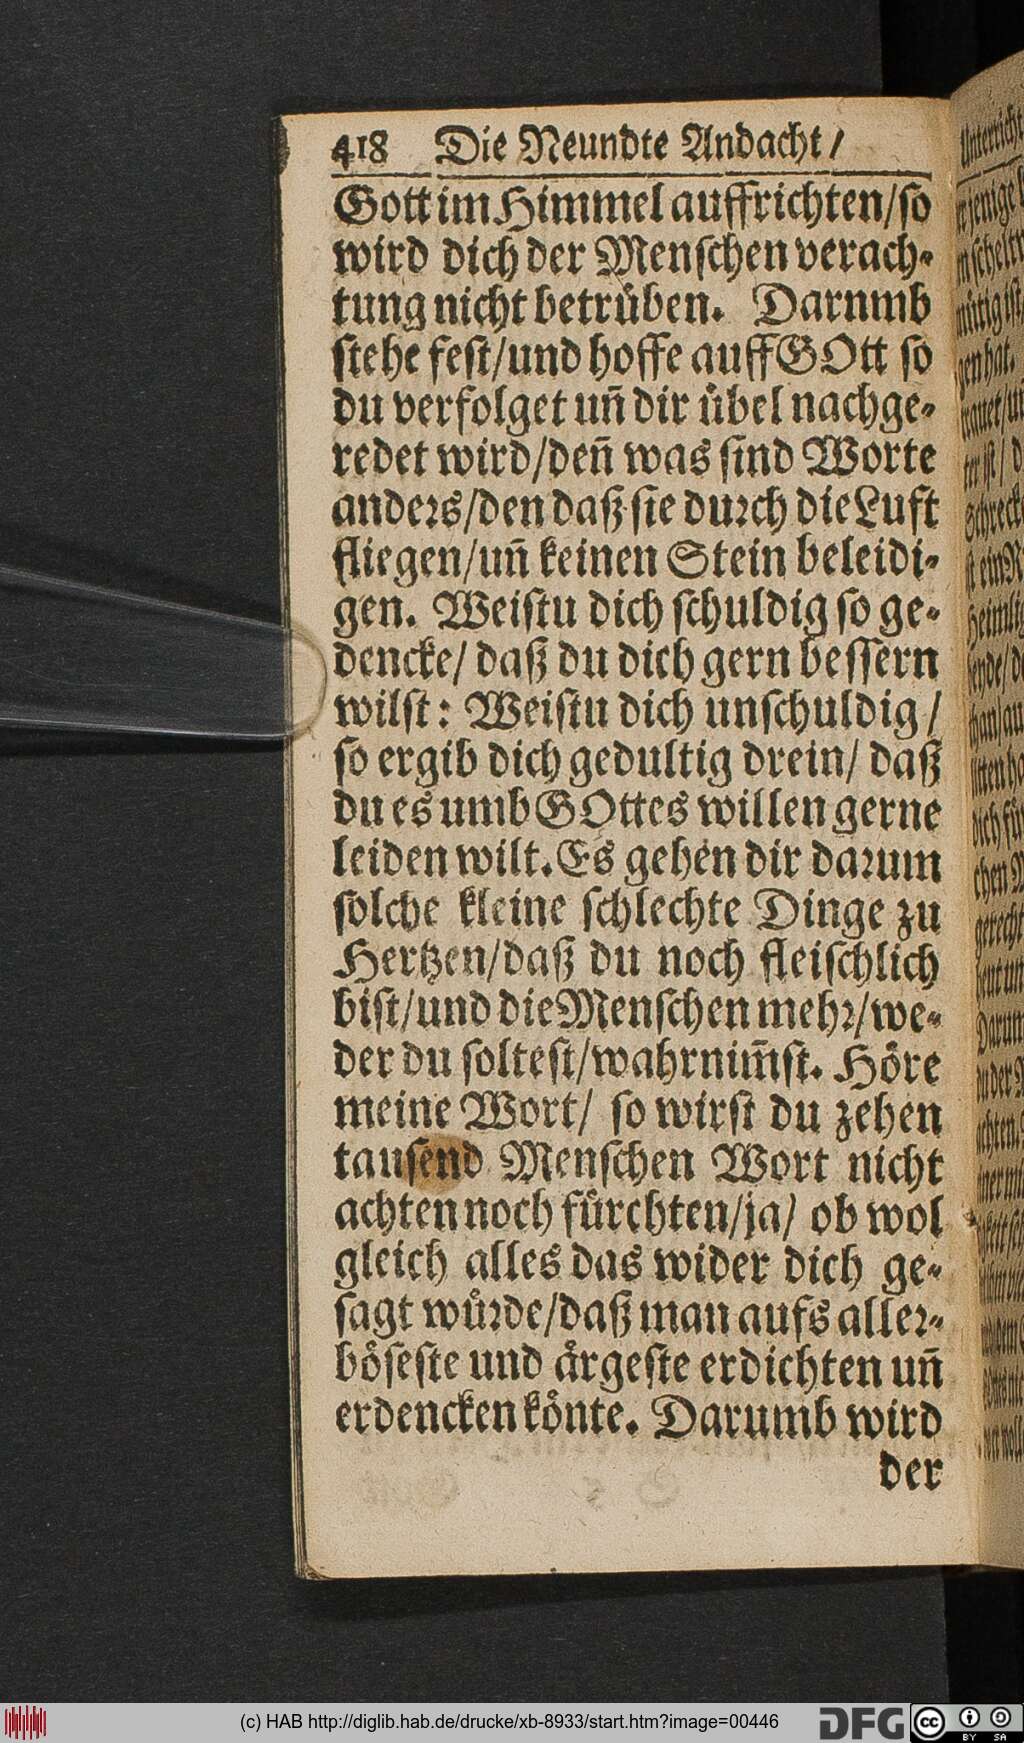 418 Die Neundte Andacht /
Gott im Himmel auffrichten/so
wird dich der Menschen verach-
tung nicht betrüben. Darnmb
stehe fest/und hoffe auff GOtt so
du verfolget uñ dir übel nachge-
redet wird/deñ was sind Worte
anders/den daß sie durch die Luft
fliegen/uñ keinen Stein beleidi-
gen. Weistu dich schuldig so ge-
dencke/ daß du dich gern bessern
wilst: Weistu dich unschuldig /
so ergib dich gedultig drein/ daß
du es umb GOttes willen gerne
leiden wilt. Es gehen dir darum
solche kleine schlechte Dinge zu
Hertzen/daß du noch fleischlich
bist/und die Menschen mehr/we-
der du soltest/wahrnim̃st. Höre
meine Wort/ so wirst du zehen
tausend Menschen Wort nicht
achten noch fürchten/ja/ ob wol
gleich alles das wider dich ge-
sagt würde/daß man aufs aller-
böseste und ärgeste erdichten uñ
erdencken könte. Darumb wird
der
(c) HAB http://diglib.hab.de/drucke/xb-8933/start.htm?image=00446
DFG
cc
BY SA